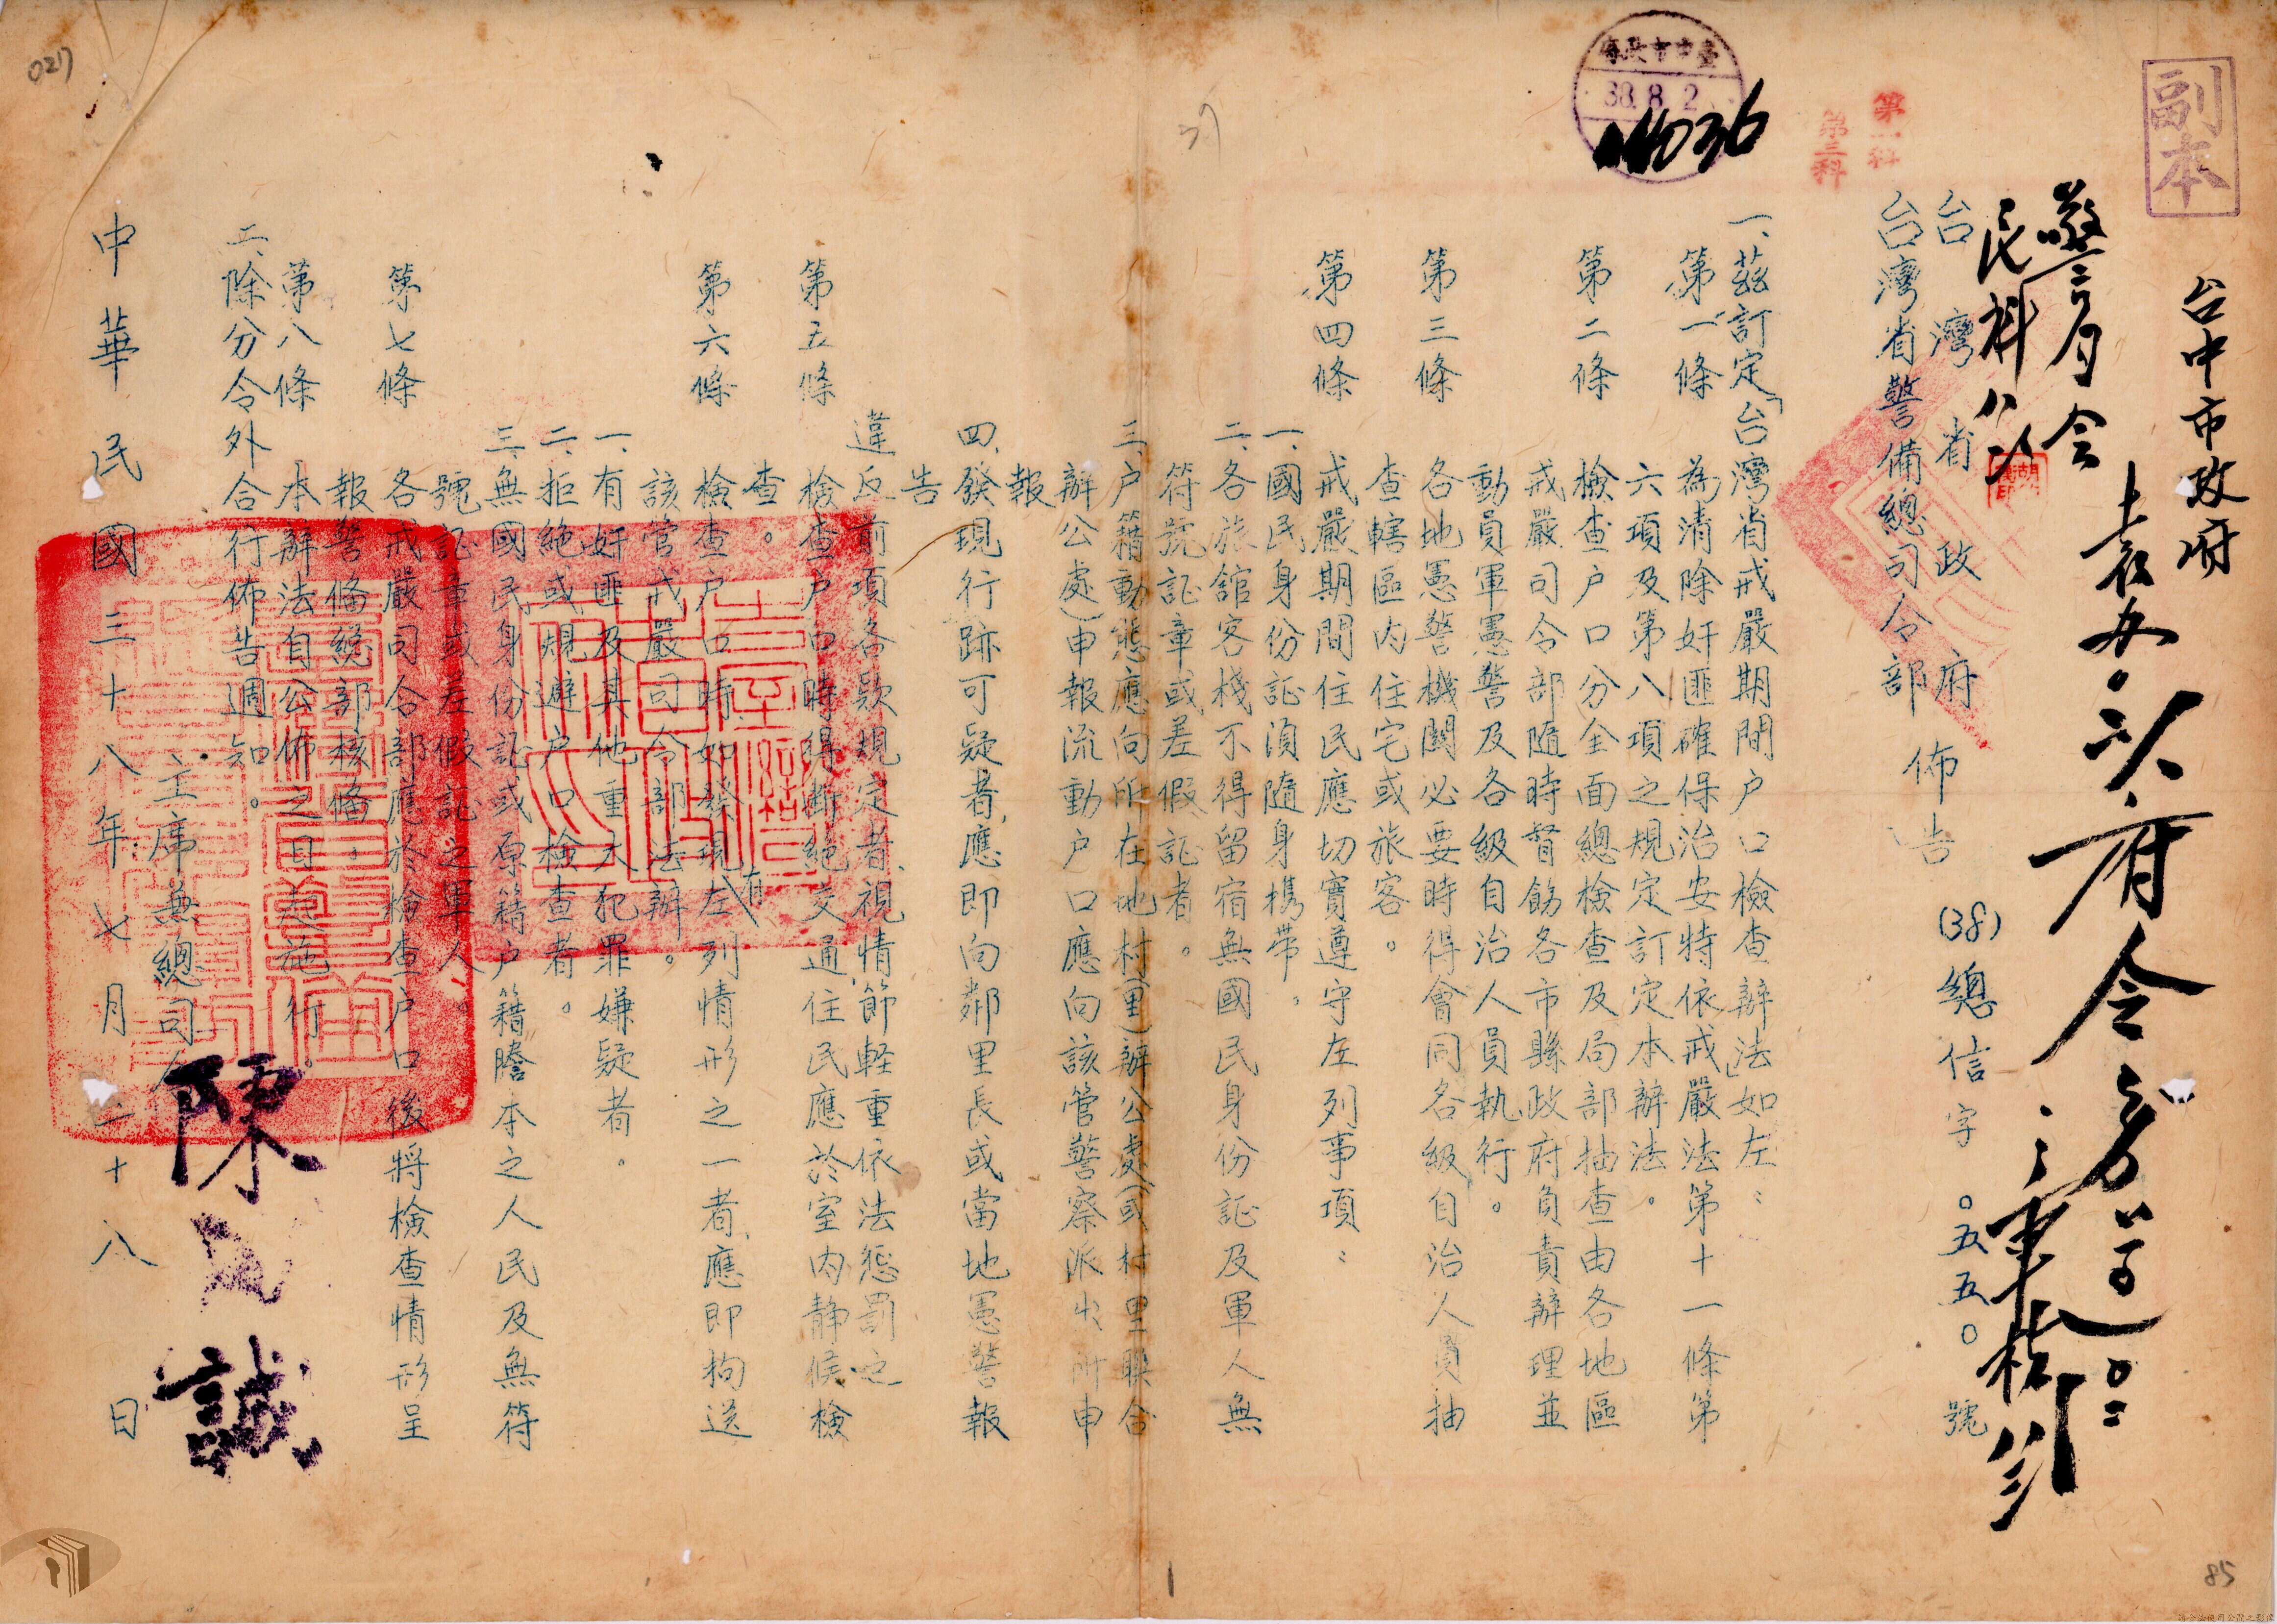 副本
台中市政府
警局会
民科
台灣省政府
台灣省警備總司令部
佈告
(38)總信字
○五五○
號
第一科
第三科
臺中市政府
38.8.2
一、茲訂定「台灣省戒嚴期間户口檢查辦法」如左：
第一條 為清除奸匪確保治安特依戒嚴法第十一條第
六項及第八項之規定訂定本辦法。
第二條 檢查户口分全面總檢查及局部抽查由各地區
戒嚴司令部隨時督飭各市縣政府負責辦理並
動員軍憲警及各級自治人員執行。
第三條 各地憲警機関必要時得會同各級自治人員抽
查轄區内住宅或旅客。
第四條 戒嚴期間住民應切實遵守左列事項：
一、國民身份証湏隨身携帶。
二、各旅舘客棧不得留宿無國民身份証及軍人無
符號証章或差假証者。
三、户籍動態應向所在地村(里)辦公處(或村里联合
辦公處)申報流動户口應向該管警察派出所申
報
四、發現行跡可疑者、應即向鄰里長或當地憲警報
告
違反前項各欵規定者、視情節軽重依法懲罰之
第五條 檢查户口時得斷絕交通、住民應於室内静候檢
查。
第六條 檢查户口時、如發現有左列情形之一者、應即拘送
該管戒嚴司令部法辦。
一、有奸匪及其他重大犯罪嫌疑者。
二、拒絕或規避户口檢查者。
三、無國民身份証或原籍户籍謄本之人民及無符
號証章或差假証之軍人。
第七條 各戒嚴司令部應於檢查户口後將檢查情形呈
報警備總部核備。
第八條 本辦法自公佈之日起施行。
二、除分令外合行佈告週知。
主席兼總司令
陳誠
中華民國三十八年七月二十八日
85